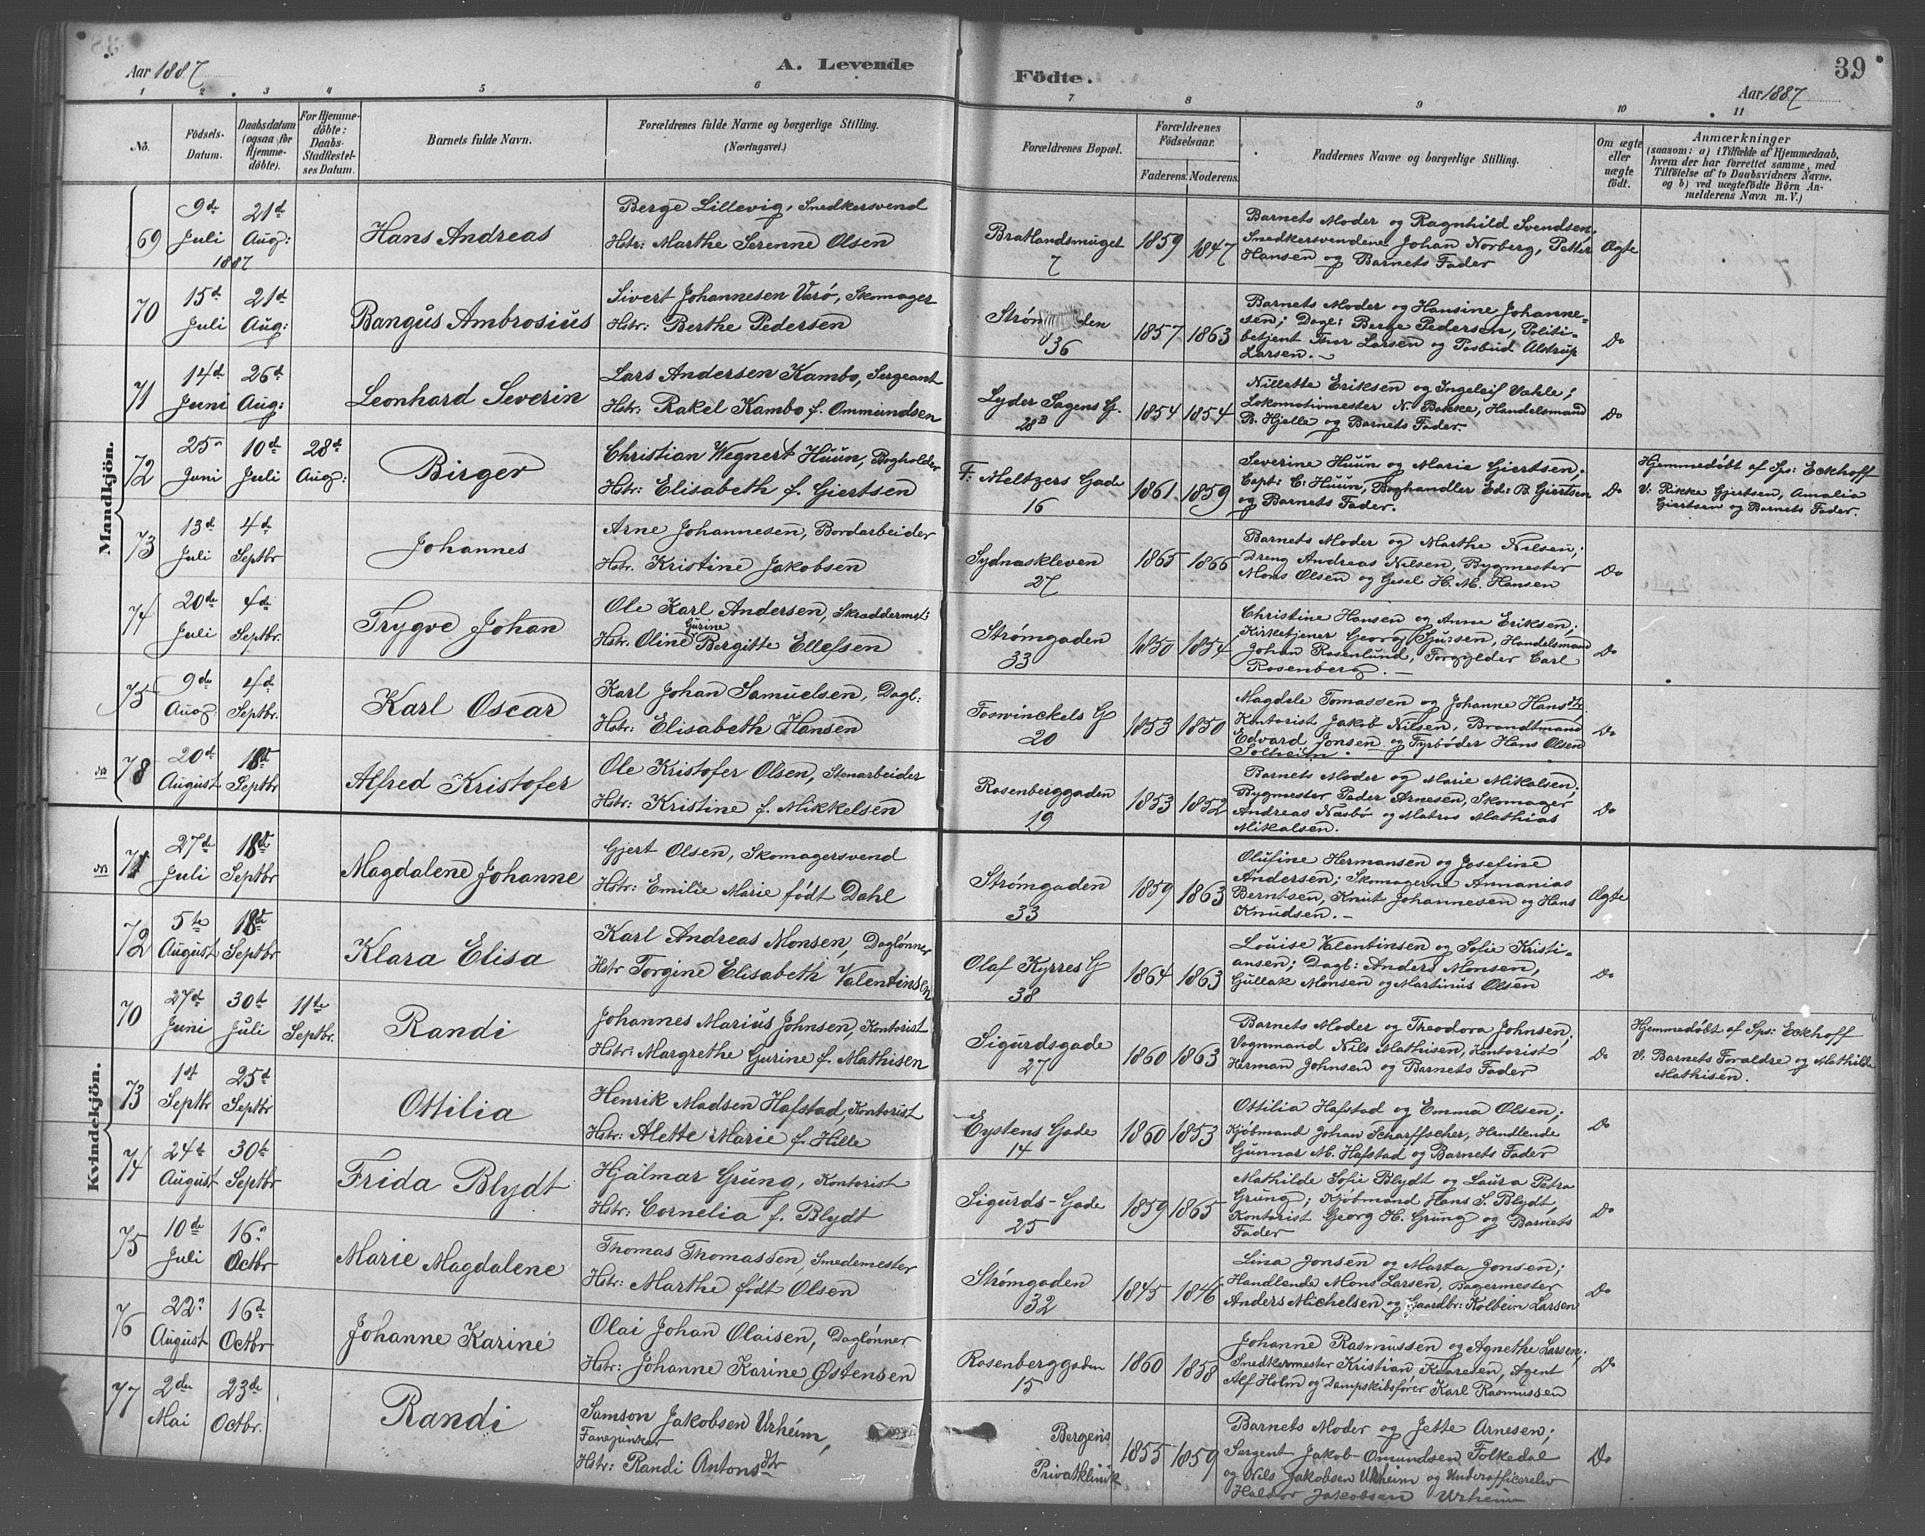 Aar 1887
A. Levende
Födte.
39
Aar 1887
1 2 3 4 5 6 7 8 9 10 11
No.
Födsels-
Datum.
Daabsdatum
(ogsaa for
Hjemme-
döbte).
For Hjemme-
döbte:
Daabs-
Stadfestel-
ses Datum.
Barnets fulde Navn.
Forældrenes fulde Navne og borgerlige Stilling.
(Næringsvei.)
Forældrenes Bopæl.
Forældrenes
Födselsaar.
Faderens. Moderens.
Faddernes Navne og borgerlige Stilling.
Om ægte
eller
uægte
födt.
Anmærkninger
(saasom: a) i Tilfælde af Hjemmedaab,
hvem der har forrettet samme, med
Tilföielse af to Daabsvidners Navne,
og b) ved uægtefödte Börn An-
melderens Navn m. V.)
Mandkjön.
69
9de Juli 1887
21de Aug:
Hans Andreas
Berge Lillevig, Snedkersvend
Hstr: Marthe Serenne Olsen
Bratlandsmuget
7
1859 1847
Barnets Moder og Ragnhild Svendsen,
Snedkersvendene Johan Norberg, Petter
Hansen og Barnets Fader
Ægte
70
15d Juli
21d Aug:
Bangus Ambrosius
Sivert Johannesen Varø, Skomager
Hstr: Berthe Pedersen
36
1857 1863
Barnets Moder og Hansine Johanne-
sen; Dagl: Berge Pedersen, Politi-
betjent Thor Larsen og Postbud Alstrup
Larsen. -
Do
71
14d Juni
26d Aug:
Leonhard Severin
Lars Andersen Kambo, Sergeant
Hstr: Rakel Kambo f. Ommundsen
Lyder Sagens G.
28B
1854 1854
Nillette Eriksen og Ingeleif Vahle;
Lokomotivmester N. Bakke, Handelsmand
B. Hjelle og Barnets Fader.
Do
72
25n Juni
10d Juli
28d Aug:
Birger
Christian Wegnert Huun, Bogholder
Hstr: Elisabeth f. Giertsen
F: Meltzers Gade
16
1861 1859
Severine Huun og Marie Giertsen;
Capt: C: Huun, Boghandler Ed: B. Giertsen
og Barnets Fader.
Do
Hjemmedøbt af Sps: Eckhoff
V: Rikke Gjertsen, Amalia
Giertsen og Barnets Fader.
73
13d Juli
4d Septbr
Johannes
Arne Johannesen, Bordarbeider
Hstr. Kristine Jakobsen
Sydnaskleven
27
1865 1866
Barnets Moder og Marthe Nilsen;
Dreng Andreas Nilsen, Bygmester
Mons Olsen og Gesel H. M. Hansen
Do
74
20de Juli
4de Septbr.
Trygve Johan
Ole Karl Andersen, Skraddermst:
Gurine
Hstr. Oline Bergitte Ellefsen
Strømgaden
33
1850 1854
Christine Hansen og Anne Eriksen;
Kirketjener Georg Sjursen, Handelsmand
Johan Rosenlund, Forgylder Carl
Rosenberg. -
Do
75
9de Aug:
4d Septbr.
Karl Oscar
Karl Johan Samuelsen, Dagl:
Hstr: Elisabeth Hansen
Foswinckels G
20
1853 1850
Magdele Tomassen og Johanne Hansdtr,
Kontorist Jakob Nilsen, Brandtmand
Edvard Jonsen og Fyrbøder Hans Olsen
Solheim.
Do
78
20d August
18d Septbr
Alfred Kristofer
Ole Kristofer Olsen, Stenarbeider
Hstr: Kristine f. Mikkelsen
Rosenberggaden
19
1853 1852
Barnets Moder og Marie Mikalsen;
Bygmester Peder Arnesen, Skomager
Andreas Næsbø og Matros Mathias
Mikalsen.
Do
Kvindekjön.
71
27d Juli
18d Septbr
Magdalene Johanne
Gjert Olsen, Skomagersvend
Hstr: Emilie Marie født Dahl
Strømgaden
33
1859 1863
Olufine Hermansen og Josefine
Andersen; Skomagerne Annanias
Berntsen, Knut Johannesen og Hans
Knudsen. -
Ægte
72
5te August
18d Septbr
Klara Elisa
Karl Andreas Monsen, Daglønner
Hstr Torgine Elisabeth Valentinsen
Olaf Kyrres G
38
1864 1863
Louise Valentinsen og Sofie Kristi-
ansen; Dagl: Anders Monsen,
Gullak Monsen og Martinus Olsen
Do
70
27d Juni
30d Juli
11te Septbr.
Randi
Johannes Marius Johnsen, Kontorist
Hstr: Margrethe Gurine f. Mathisen
Sigurdsgade
27
1860 1863
Barnets Moder og Theodora Johnsen;
Vognmand Nils Mathisen, Kontorist
Herman Johnsen og Barnets Fader
Do
Hjemmedøbt af Sps: Eckhoff
V: Barnets Foraldre og Mathilde
Mathisen.
73
1st Septbr
25d Septbr
Ottilia
Henrik Madsen Hafstad, Kontorist
Hstr: Alette Marie f. Hille
Eystens Gade
14
1860 1853
Ottilia Hafstad og Emma Olsen;
Kjøbmand Johan Scharffscher, Handlende
Gunnar M. Hafstad og Barnets Fader
Do
74
24d August
30d Septbr
Frida Blydt
Hjalmar Grung, Kontorist
Hstr. Cornelia f. Blydt
Sigurds-Gade
25
1859 1865
Mathilde Sofie Blydt og Laura Petra
Grung; Kjøbmand Hans S. Blydt,
Kontorist Georg H. Grung og Barnets
Fader
Do
75
10de Juli
16n Octbr
Marie Magdalene
Thomas Thomassen, Smedemester
Hstr: Marthe født Olsen
Strømgaden
32
1845 1846
Lina Jonsen og Marta Jonsen;
Handlende Mons Larsen, Bagermester
Anders Michelsen og Gaardbr: Kolbein Larsen
Do
76
22n August
16d Octbr
Johanne Karine
Olai Johan Olaisen, Daglønner
Hstr: Johanne Karine Østensen
Rosenberggaden
15
1860 1858
Johanne Rasmussen og Agnethe Larsen;
Snedkermester Kristian Kaaresen, Agent
Alf Holm og Dampskibsfører Karl Rasmussen
Do
77
2den Mai
23de Octbr.
Randi
Samson Jakobsen Urheim,
Fanejunker
Hstr: Randi Antonsdtr
Bergens
Privatklinik
1855 1859
Barnets Moder og Jette Arnesen;
Sergent Jakob Omundsen Folkedal
og Nils Jakobsen Urheim og Underofficerelev
Haldor Jakobsen Urheim
Do